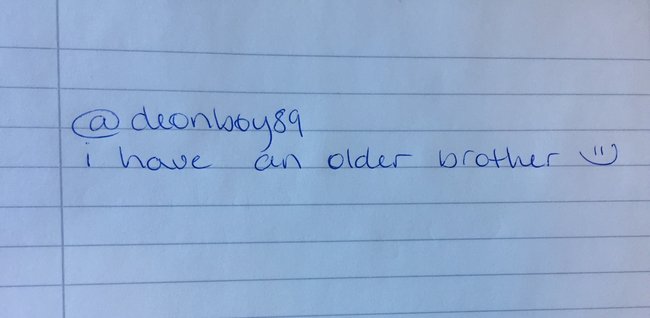 @deonboy89
i have an older brother :)